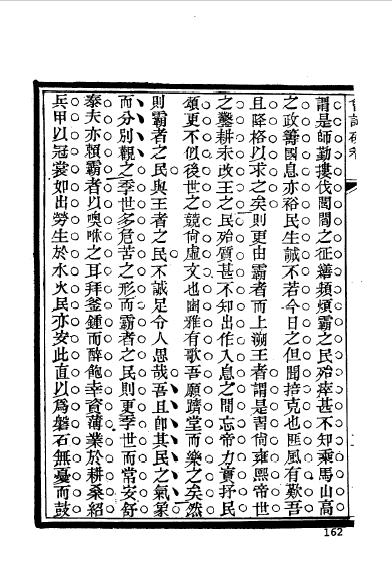 謂是師勤搜伐閭閻之征繕頻煩霸之民殆瘁甚不知乘馬山高
之政籌國息亦裕民生誠不若今日之但聞掊克也匪風有歎吾
且降格以求之矣則更由霸者而上溯王者謂是習尚雍熙帝世
之鑿耕未改王之民殆質甚不知出作入息之間忘帝力實抒民
頌更不似後世之競尚虛文也豳雅有歌吾願躋堂而樂之矣然
則霸者之民與王者之民不誠足令人思哉吾且卽其民之氣象
而分別觀之季世多危苦之形而霸者之民則更季世而常安舒
泰夫亦賴霸者以噢咻之耳拜釜鍾而醉飽幸資薄業於耕桑紹
兵甲以冠裳如出勞生於水火民亦安此直以爲磐石無憂而鼓
162